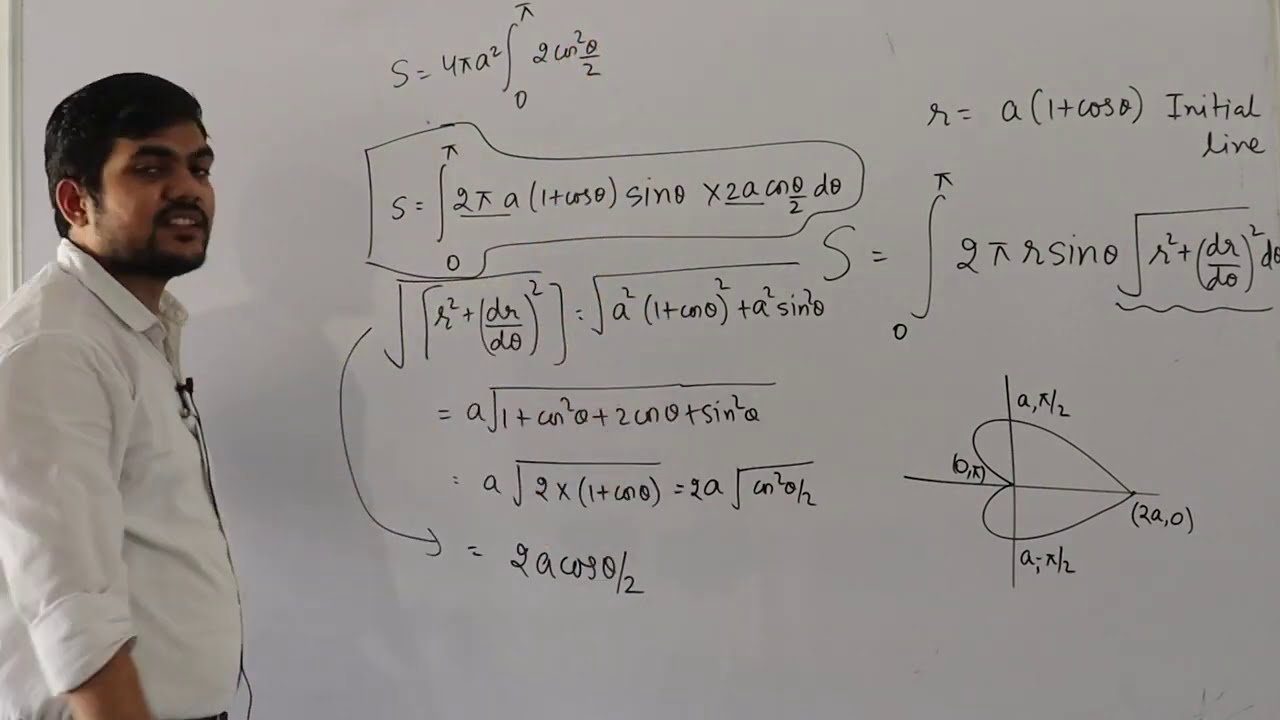 S = 4πa² ∫₀^π 2cos²θ/2
S = ∫₀^π 2π a (1+cosθ) sinθ × 2a cosθ/2 dθ
√[r² + (dr/dθ)²] = √a² (1+cosθ)² + a² sin²θ
= a√1 + cos²θ + 2cosθ + sin²θ
= a √2 × (1+cosθ) = 2a √cos²θ/2
= 2a cosθ/2
r = a (1+cosθ) Initial
line
S = ∫₀^π 2π r sinθ √r² + (dr/dθ)² dθ
a, π/2
(0, π)
(2a, 0)
a, -π/2